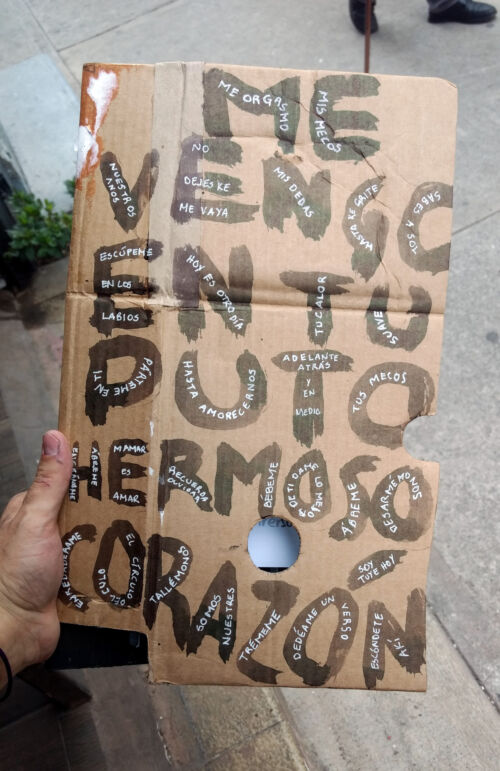 ME
ME ORGASMO
MIS MECOS
VENGO
NUESTROS AÑOS
NO DEJES KE ME VAYA
MIS DEDAS
HASTA KE GRITE
SABES A SOY
EN TU
ESCÚPEME EN LOS LABIOS
HOY ES OTRO DÍA
TU CALOR
SUAVE
PUTO
PÁRTEME EN TI
HASTA AMORECERNOS
ADELANTE ATRÁS Y EN MEDIO
TUS MECOS
HERMOSO
ABREME
MAMAR ES AMAR
RECUERDA OLVIDAR
BÉBEME
DE TI DAMA LO MEJOR
ÁBREME
DESARMÉMONOS
CORAZÓN
ENREDADÉRAME
EL CÍRCULO DEL CULO
TALLÉMONO
SOMOS NUESTRES
TRÉMEME
DEDÉAME UN VERSO
SOY TUYE HOY
ESCÓNDETE AKÍ